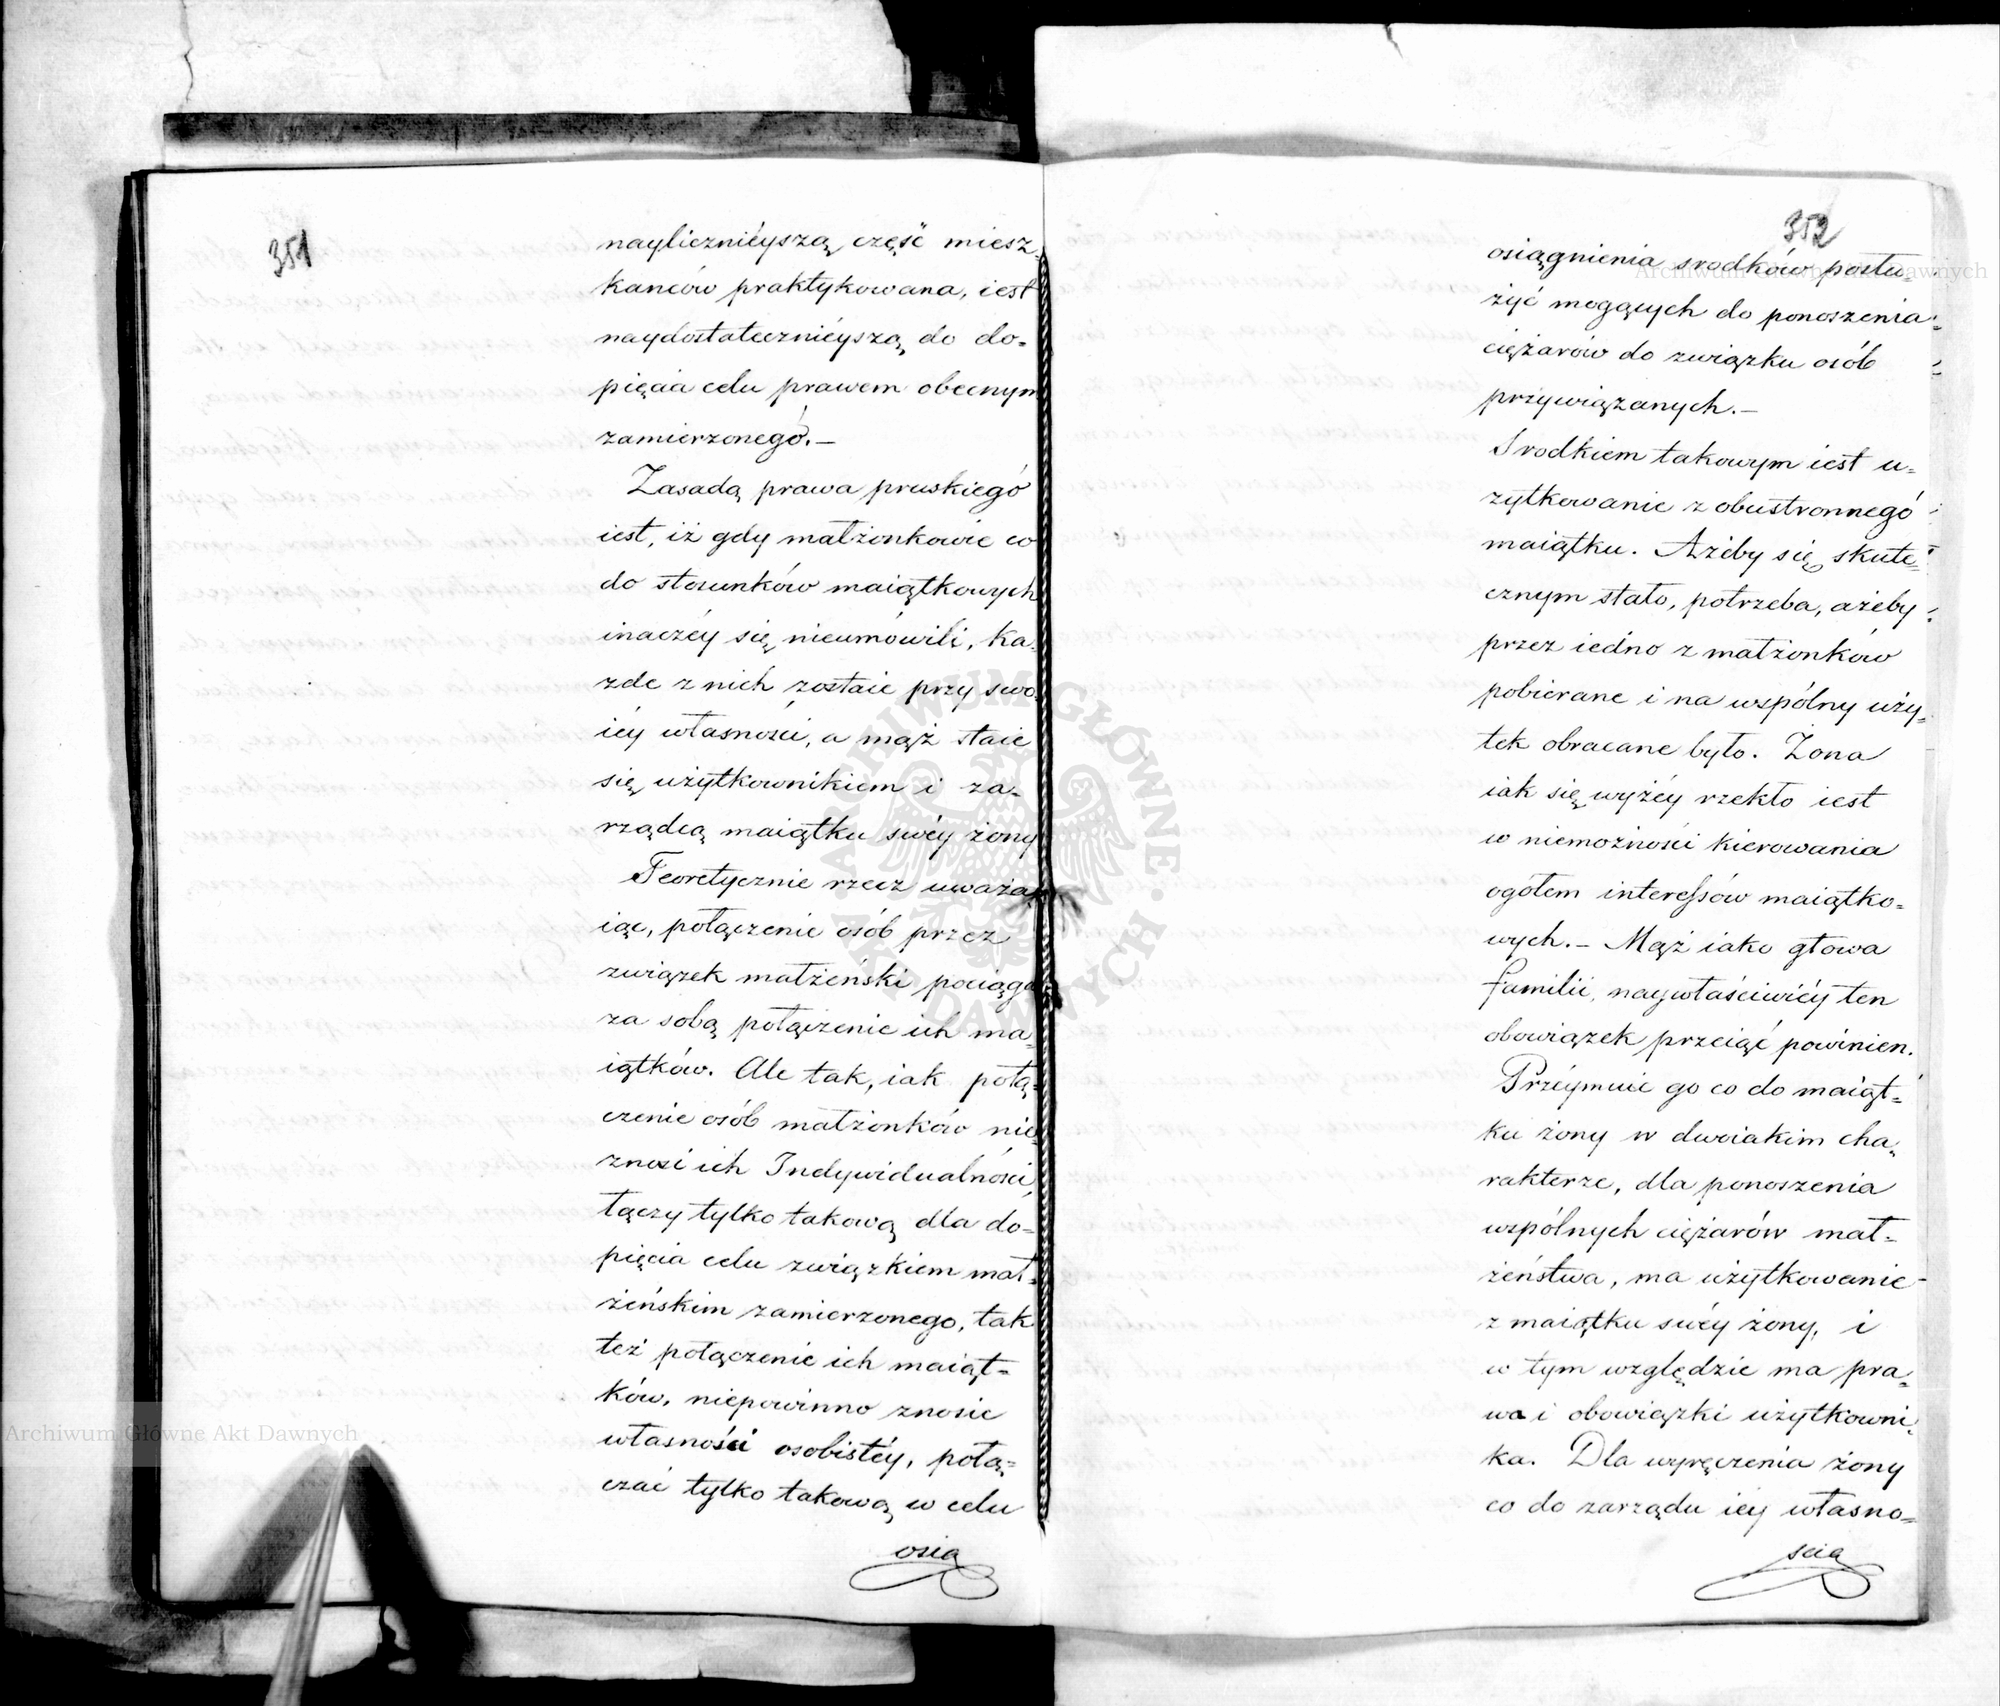 351
nayliczniéyszą część miesz-
kańców praktykowana, iest
naydostateczniéyszą do do-
pięcia celu prawem obecnym
zamierzonegó.—
Zasadą prawa pruskiegó
iest, iż gdy małżonkowie co
do stosunków maiątkowych
inaczéy się nieumówili, ka-
żde z nich zostaie przy swo-
iéy własności, a mąż staie
się użytkownikiem i za-
rządcą maiątku swéy żony
Teoretycznie rzecz uważa-
iąc, połączenie osób przez
związek małżeński pociąga
za sobą połączenie ich ma-
iątków. Ale tak, iak połą-
czenie osób małżonków nie-
znosi ich Indywidualności,
łączy tylko takową dla do-
pięcia celu związkiem mał-
żeńskim zamierzonego, tak
też połączenie ich maiąt-
ków, niepowinno znosić
własności osobistéy, połą-
czać tylko takową w celu
osią
352
osiągnienia srodków posłu-
żyć mogących do ponoszenia
ciężarów do związku osób
przywiązanych.—
Srodkiem takowym iest u-
żytkowanie z obustronnegó
maiątku. Ażeby się skute-
cznym stało, potrzeba, ażeby
przez iedno z małżonków
pobierane i na wspólny uży-
tek obracane było. Żona
iak się wyżéy rzekło iest
w niemożności kierowania
ogółem interessów maiątko-
wych.— Mąż iako głowa
familii, naywłaściwiéy ten
obowiązek przeiąć powinien.
Przéymuie go co do maiąt-
ku żony w dwoiakim cha-
rakterze, dla ponoszenia
wspólnych ciężarów mał-
żeństwa, ma użytkowanie
z maiątku swéy żony, i
w tym względzie ma pra-
wa i obowiązki użytkowni-
ka. Dla wyręczenia żony
co do zarządu iéy własno-
scią
Archiwum Główne Akt Dawnych
Archiwum Główne Akt Dawnych
ARCHIWUM GŁÓWNE AKT DAWNYCH